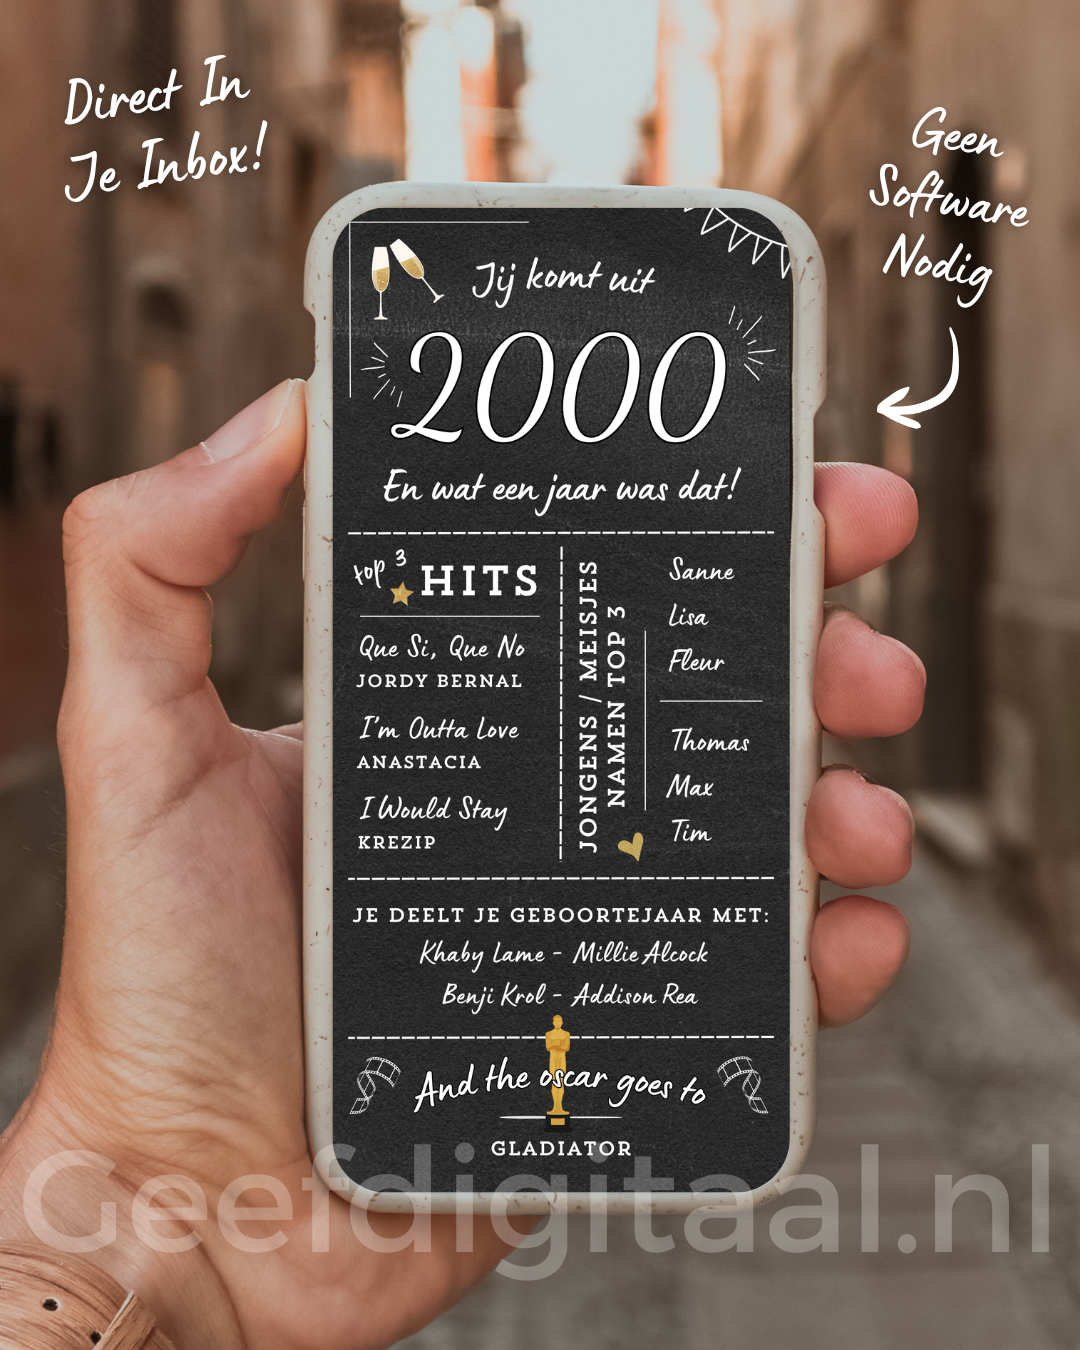 Direct In
Je Inbox!
Geen
Software
Nodig
Jij komt uit
2000
En wat een jaar was dat!
top 3
HITS
Que Si, Que No
JORDY BERNAL
I'm Outta Love
ANASTACIA
I Would Stay
KREZIP
JONGENS / MEISJES
NAMEN TOP 3
Sanne
Lisa
Fleur
Thomas
Max
Tim
JE DEELT JE GEBOORTEJAAR MET:
Khaby Lame - Millie Alcock
Benji Krol - Addison Rea
And the oscar goes to
GLADIATOR
Geefdigitaal.nl